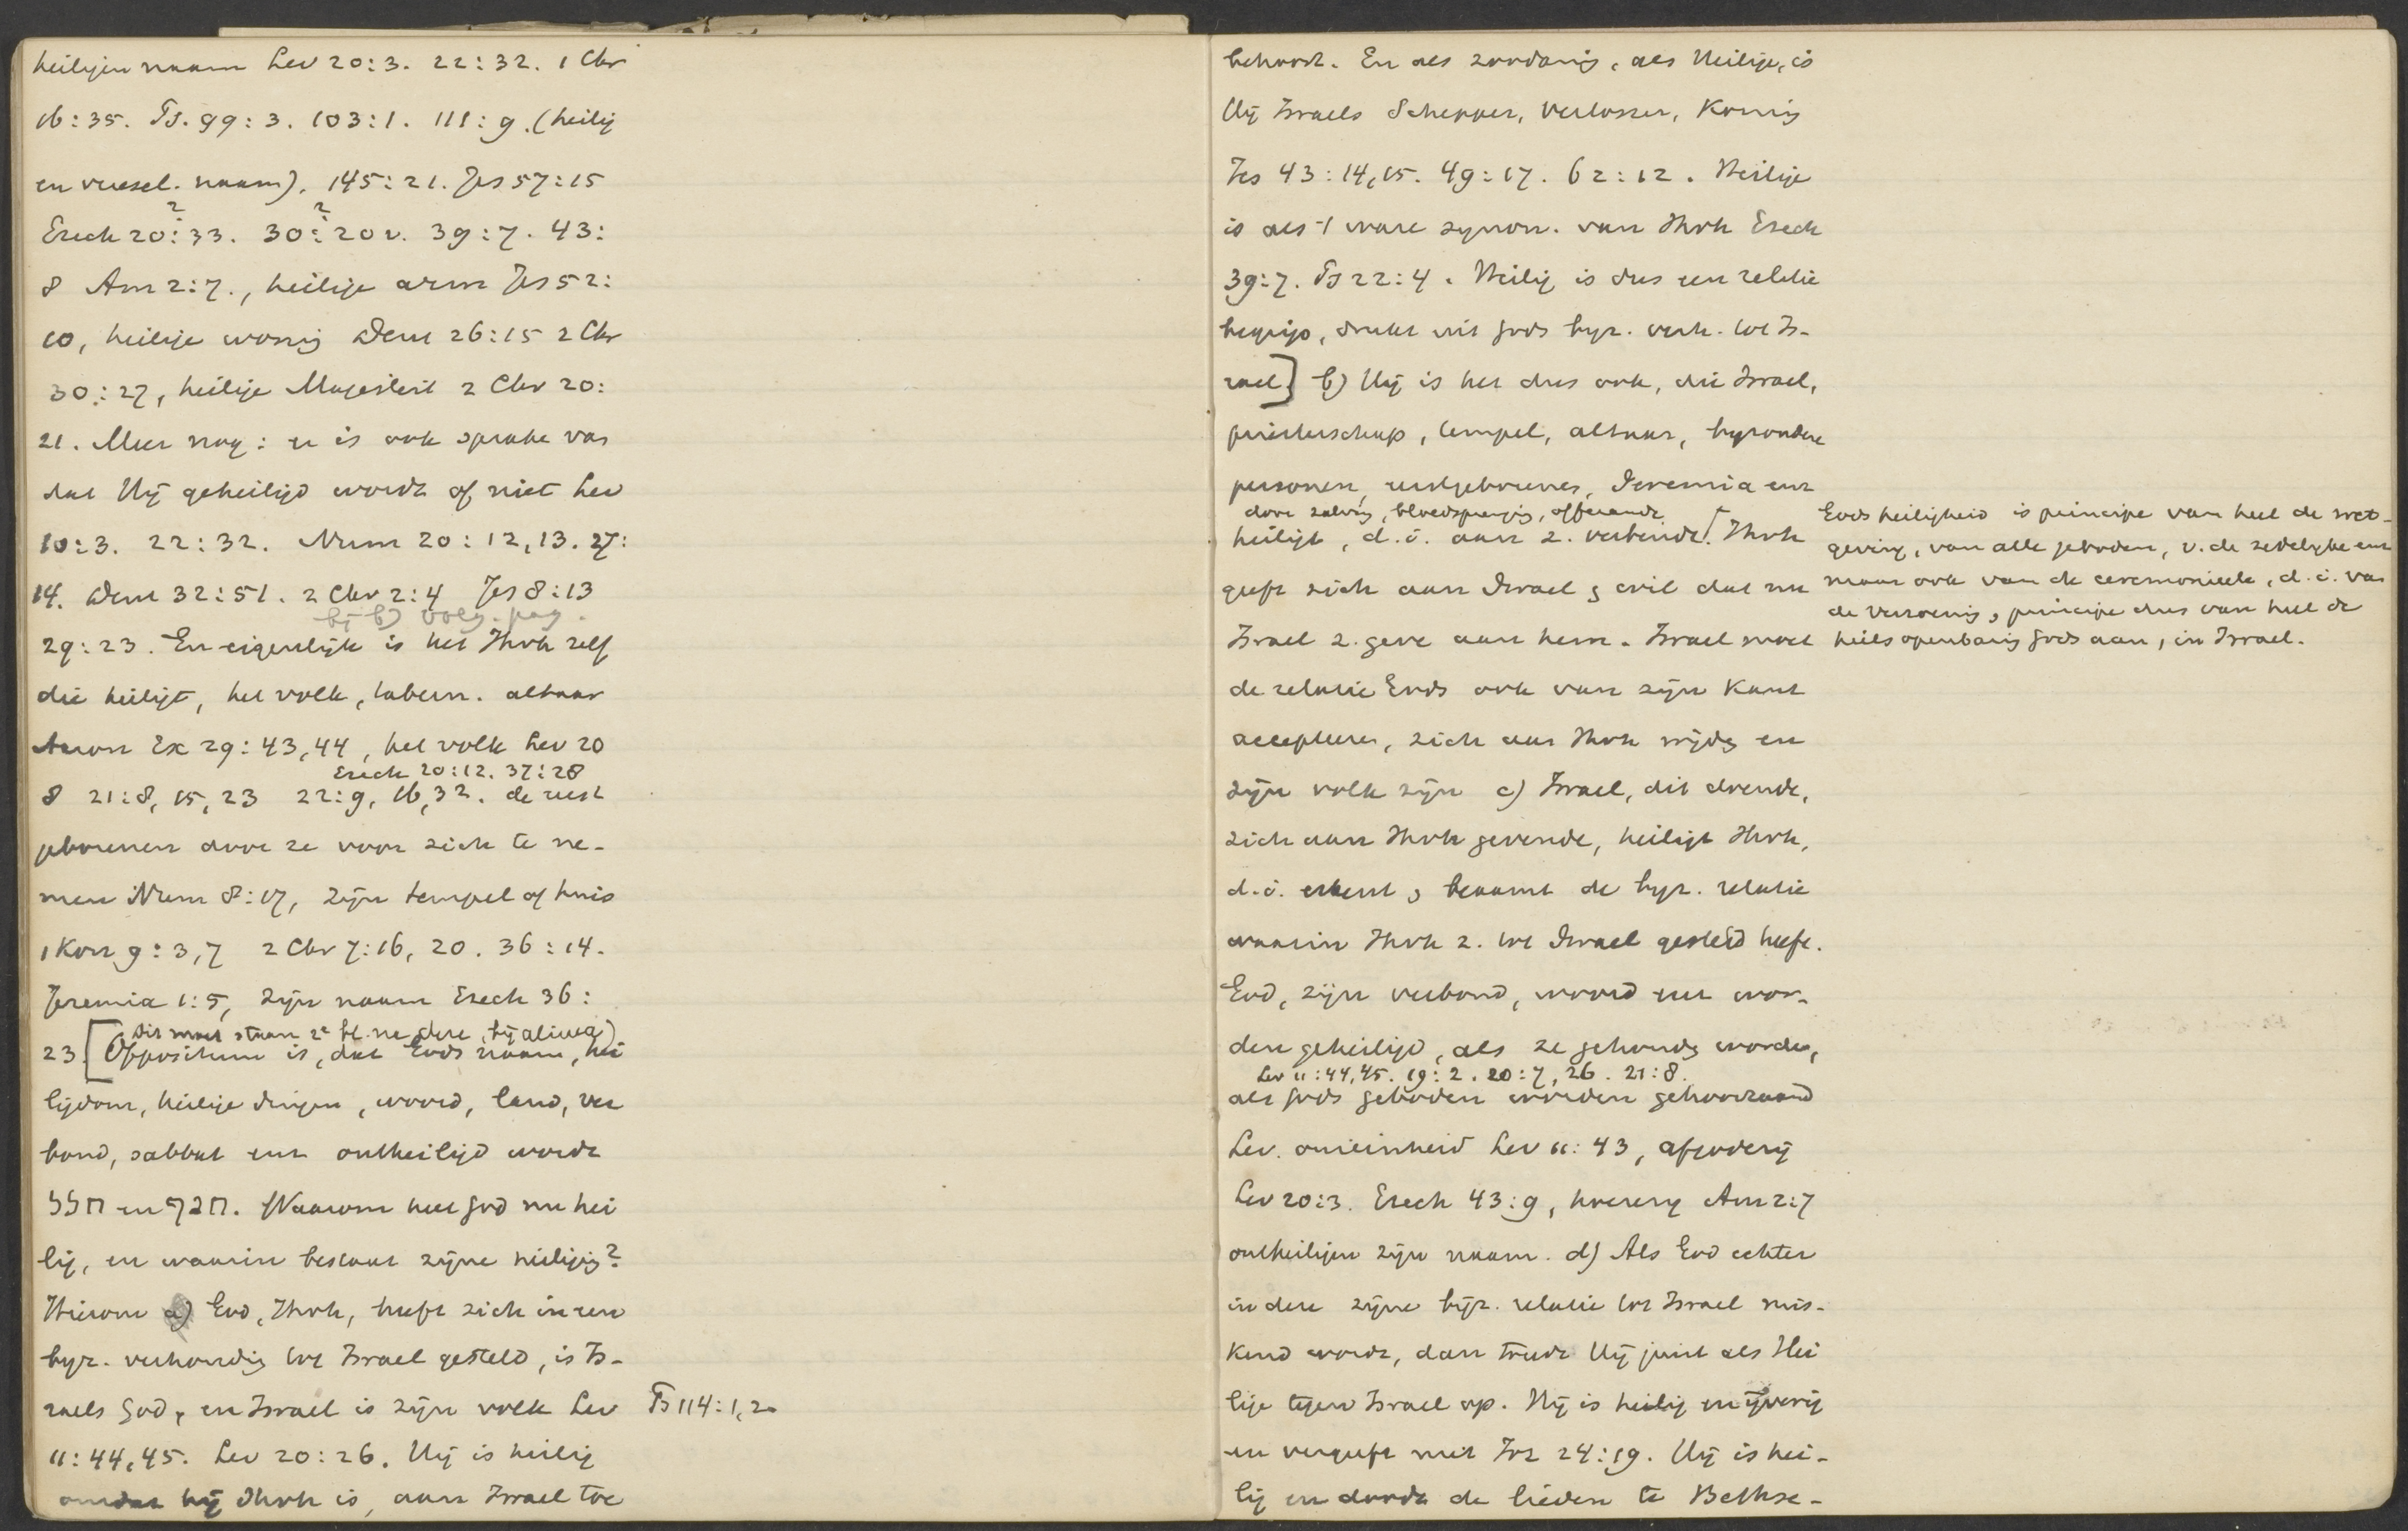 heiligen naam Lev 20:3. 22:32. 1 Chr
16:35. Ps. 99:3. 103:1. 111:9. (heilig
en vreesel. naam), 145:21. Jes 57:15
Ezech 20:33. 30:20 v. 39:7. 43:
8 Am 2:7., heilige arm Jes 52:
10, heilige woning Deut 26:15 2 Chr
30:27, heilige Majesteit 2 Chr 20:
21. Meer nog: er is ook sprake van
dat Hij geheiligd wordt of niet Lev
10:3. 22:32. Num 20:12,13. 27:
14. Deut 32:51. 2 Chr 2:4 Jes 8:13
bij b) volg. pag.
29:23. En eigenlijk is het Jhvh zelf
die heiligt, het volk, tabern. altaar
Aaron Ex 29:43,44, het volk Lev 20
Ezech 20:12. 37:28
8 21:8, 15, 23 22:9, 16, 32. de eerst
geborenen door ze voor zich te ne-
men Num 8:17, zijn tempel of huis
1 Kon 9:3,7 2 Chr 7:16, 20. 36:14.
Jeremia 1:5, zijn naam Ezech 36:
Dit moet staan 2e bl. ne dere, bij alinea)
23. [Oppositum is, dat Gods naam, hei
ligdom, heilige dingen, woord, land, ver
bond, sabbat enz ontheiligd wordt
חלל en חנף. Waarom heet God nu hei
lig, en waarin bestaat zijne heiligig?
Hierom a) God, Jhvh, heeft zich in een
byz. verhouding tot Israel gesteld, is Is-
raels God, en Israel is zijn volk Lev Ps 114:1,2
11:44,45. Lev 20:26. Hij is heilig
omdat hij Jhvh is, aan Israel toe
behoort. En als zoodanig, als Heilige, is
Hij Israels Schepper, Verlosser, Koning
Jes 43:14,15. 49:17. 62:12. Heilige
is als 't ware synon. van Jhvh Ezech
39:7. Ps 22:4. Heilig is dus een relatie
begrip, drukt uit Gods byz. verh. tot Is-
rael] b) Hij is het dus ook, die Israel,
priesterschap, tempel, altaar, byzondere
personen, eerstgeborenen, Jeremia enz
door zalving, bloedspreng'g, offerande
heiligt, d.i. aan z. verbindt. [Jhvh
geeft zich aan Israel & wil dat nu
Israel z. geve aan hem. Israel moet
de relatie Gods ook van zijn kant
accepteren, zich aan Jhvh wijdg en
zijn volk zijn c) Israel, dit doende,
zich aan Jhvh gevende, heiligt Jhvh,
d.i. erkent & beaamt de byz. relatie
waarin Jhvh z. tot Israel gesteld heeft.
God, zijn verbond, woord enz wor-
den geheiligd, als ze gehoudg worden,
Lev 11:44,45. 19:2. 20:7, 26. 21:8.
als Gods geboden worden gehoorzaamd
Lev. onreinheid Lev 11:43, afgoderij
Lev 20:3. Ezech 43:9, hoererij Am 2:7
ontheiligen zijn naam. d) Als God echter
in deze zijne bijz. relatie tot Israel mis-
kend wordt, dan treedt Hij juist als Hei
lige tegen Israel op. Hij is heilig en ijverig
en vergeeft niet Joz 24:19. Hij is hei-
lig en doodt de lieden te Bethse-
Gods heiligheid is principe van heel de wet-
geving, van alle geboden, v. de zedelijke enz
maar ook van de ceremonieele, d.i. van
de verzoening, principe dus van heel de
heilsopenbaring Gods aan, in Israel.